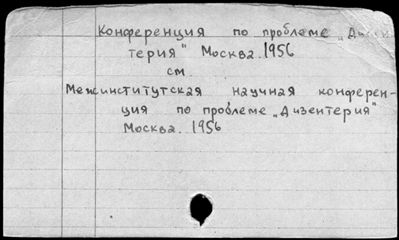 Конференция по проблеме „Дизен-
терия" Москва. 1956
см
Межинститутская научная конферен-
ция по проблеме „Дизентерия"
Москва. 1956